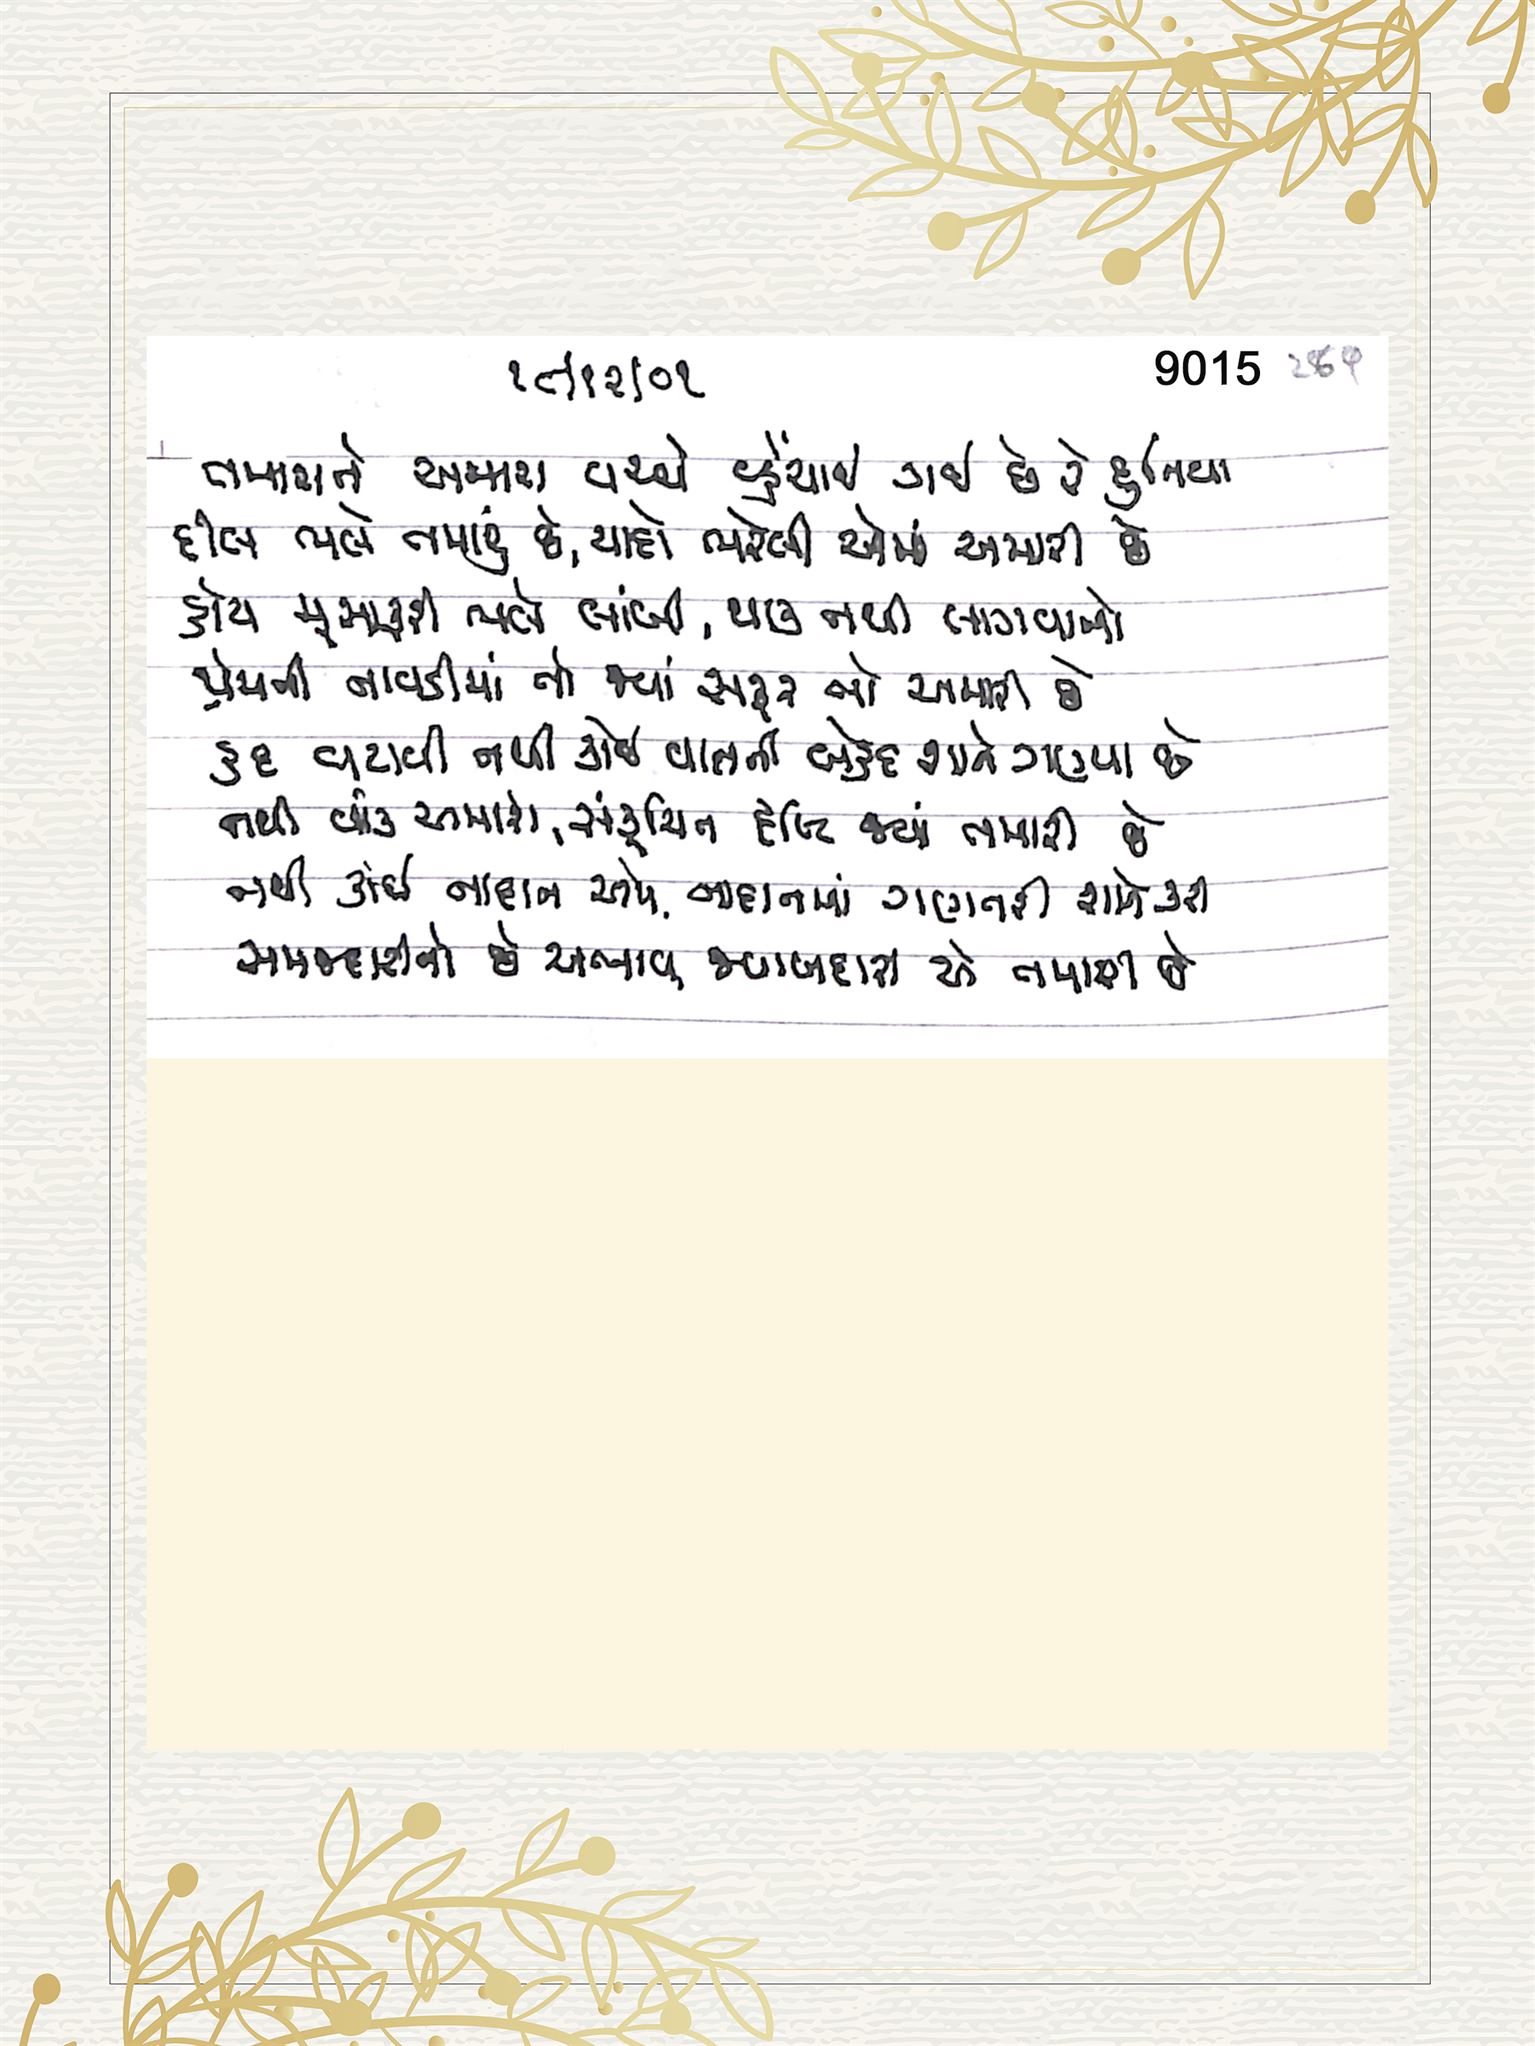 ૧૯/૧૨/૦૧
9015
તમારાને અમારા વચ્ચે વ્હેંચાઈ ગઈ છે રે દુનિયા
દીલ ભલે તમારું છે, યાદો ભરેલી એમાં અમારી છે
હોય મુસાફરી ભલે લાંબી, થાક નથી લાગવાનો
પ્રેમની નાવડીમાં તો જ્યાં સફર તો અમારી છે
હદ વટાવી નથી કોઈ વાતની બેહદ શાને ગણ્યા છે
નથી વાંક અમારો, સંકુચિત દૃષ્ટિ જ્યાં તમારી છે
નથી કોઈ નાદાન અમે, નાદાનમાં ગણતરી શાને કરી
સમજદારીનો છે અભાવ, જવાબદારી એ તમારી છે